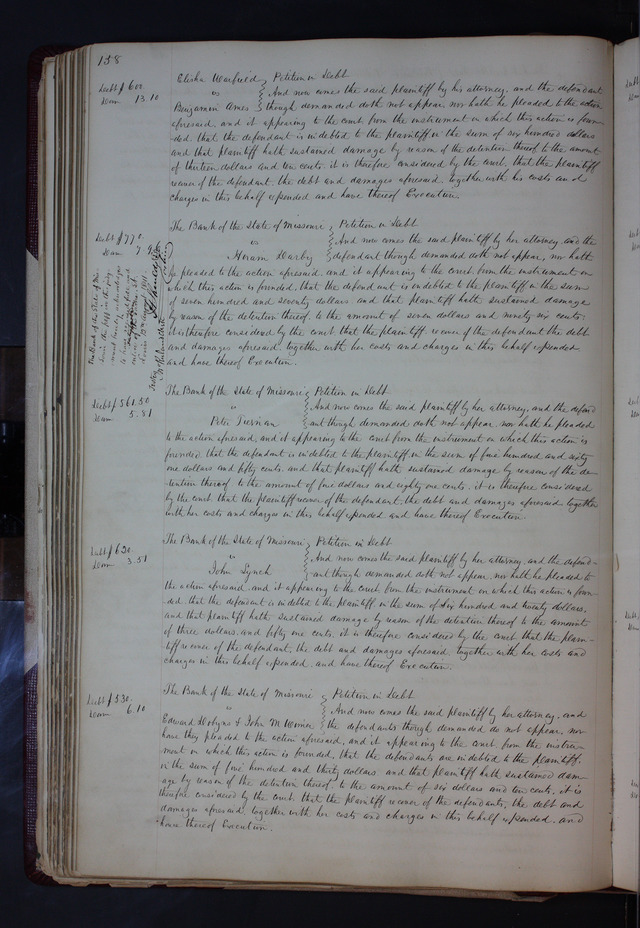 138
Debt $600
Dam 13.10
Elisha Warfield } Petition in Debt
vs } And now comes the said plaintiff by his attorney, and the defendant
Benjamin Ames } though demanded doth not appear nor hath he pleaded to the action
aforesaid, and it appearing to the court from the instrument in which this action is foun-
-ded, that the defendant is indebted to the plaintiff in the sum of six hundred dollars
and that plaintiff hath sustained damage by reason of the detention thereof to the amount
of thirteen dollars and ten cents. it is therefore considered by the court, that the plaintiff
recover of the defendant, the debt and damages aforesaid, together with his costs and
charges in this behalf expended and have thereof Execution.
Debt $770.
Dam 7.96
The Bank of the State of Missouri } Petition in Debt
vs } And now comes the said plaintiff by her attorney, and the
Hiram Darby } defendant though demanded doth not appear, nor hath
he pleaded to the action aforesaid, and it appearing to the court from the instrument on
which this action is founded, that the defendant is indebted to the plaintiff in the sum
of seven hundred and seventy dollars and that plaintiff hath sustained damage
by reason of the detention thereof, to the amount of seven dollars and ninety six cents.
it is therefore considered by the court that the plaintiff recover of the defendant the debt
and damages aforesaid, together with her costs and charges in this behalf expended
and have thereof Execution.
The Bank of the State of Mis-
Debt $561.50
Dam 5.81
The Bank of the State of Missouri } Petition in Debt
" } And now comes the said plaintiff by her attorney, and the defend
Peter Tiernan } ant though demanded doth not appear, nor hath he pleaded
to the action aforesaid, and it appearing to the court from the instrument on which this action is
founded, that the defendant is indebted to the plaintiff, in the sum of five hundred and sixty
one dollars and fifty cents. and that plaintiff hath sustained damage by reason of the de-
-tention thereof to the amount of five dollars and eighty one cents. it is therefore considered
by the court that the plaintiff recover of the defendant, the debt and damages aforesaid together
with her costs and charges in this behalf expended and have thereof Execution.
Debt $620
Dam 3.51
The Bank of the State of Missouri } Petition in Debt
" } And now comes the said plaintiff by her attorney, and the defend-
John Lynch } -ant though demanded doth not appear, nor hath he pleaded to
the action aforesaid, and it appearing to the court from the instrument on which this action is foun-
ded, that the defendant is indebted to the plaintiff, in the sum of six hundred, and twenty dollars.
and that plaintiff hath sustained damage by reason of the detention thereof to the amount
of three dollars, and fifty one cents, it is therefore considered by the court that the plain-
tiff recover of the defendant, the debt and damages aforesaid, together with her costs and
charges in this behalf expended, and have thereof Execution.
Debt $530.
Dam 6.10
The Bank of the State of Missouri } Petition in Debt
" } And now comes the said plaintiff by her attorney, and
Edward Dobyns & John M Wimer } the defendants though demanded do not appear, nor
have they pleaded to the action aforesaid, and it appearing to the court from the instru-
ment on which this action is founded, that the defendants are indebted to the plaintiff,
in the sum of five hundred and thirty dollars and that plaintiff hath sustained dam-
age by reason of the detention thereof, to the amount of six dollars and ten cents. it is
therefore considered by the court, that the plaintiff recover of the defendants, the debt and
damages aforesaid together with her costs and charges in this behalf expended. and
have thereof Execution.